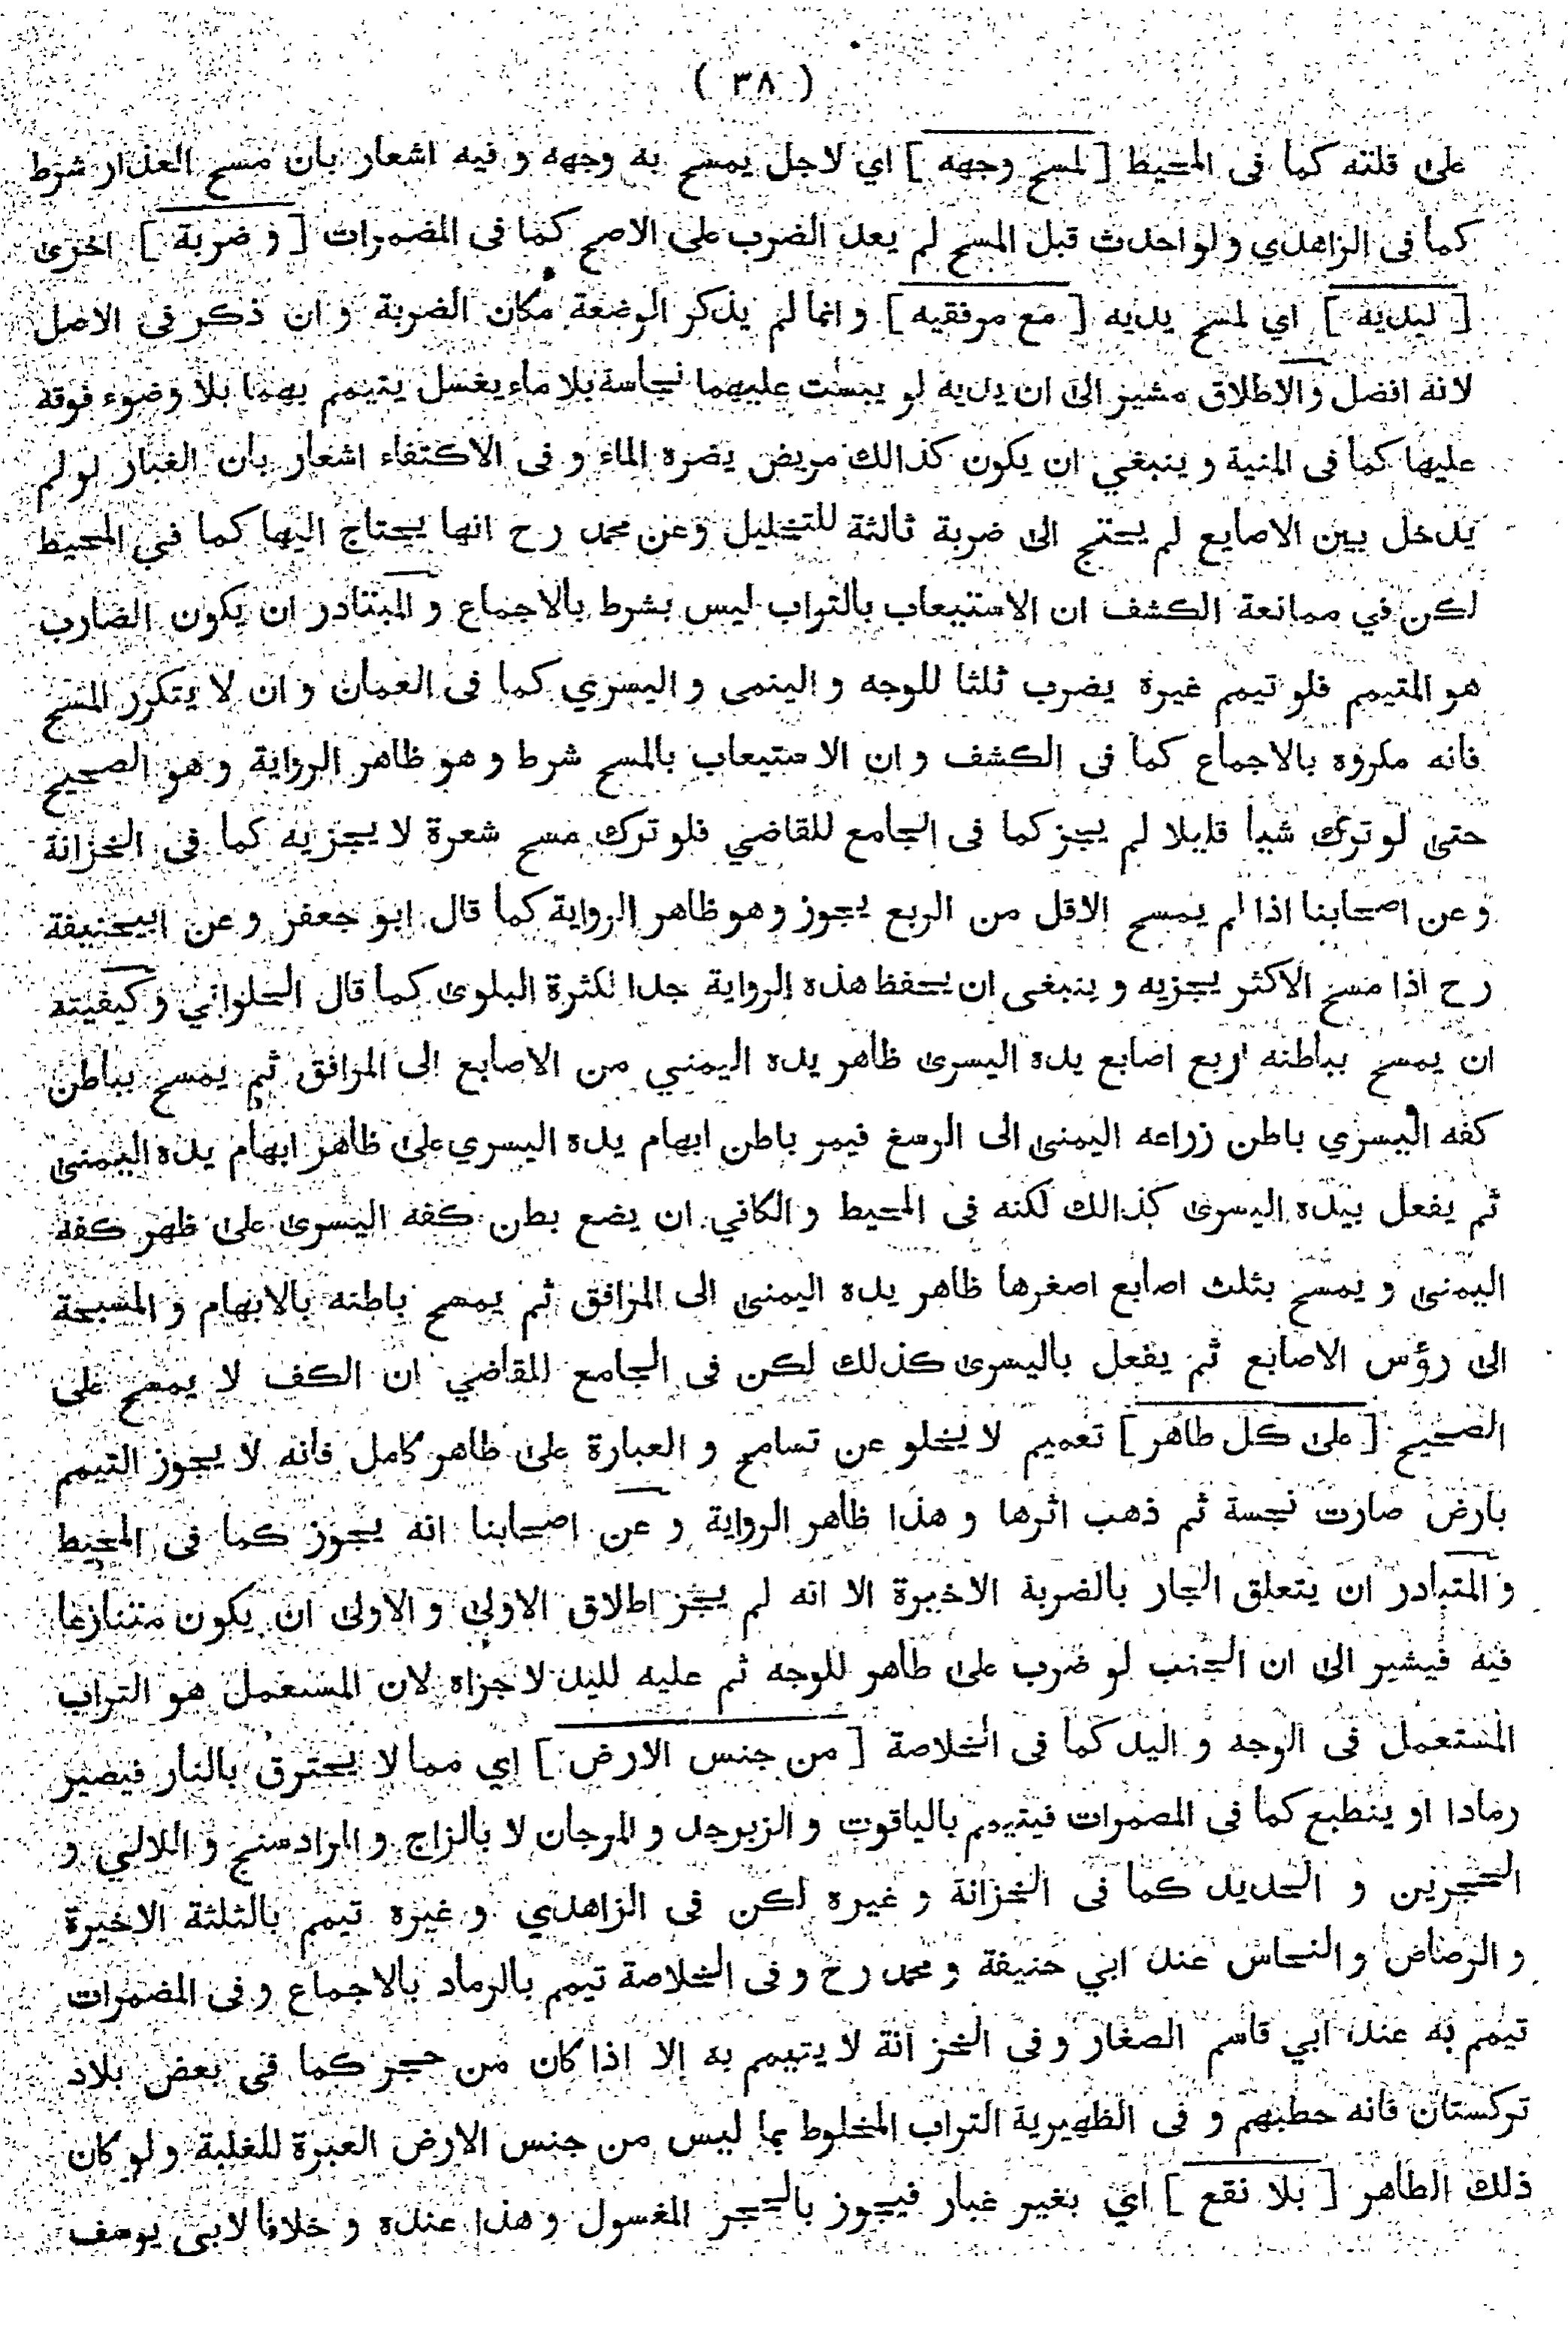 ( ٣٨ )
على قلته كما فى المحيط [ لمسح وجهه ] اي لاجل يمسح به وجهه و فيه اشعار بان مسح العذار شرط
كما فى الزاهدي و لو احدث قبل المسح لم يعد الضرب على الاصح كما فى المضمرات [ و ضربة ] اخرى
[ ليديه ] اي لمسح يديه [ مع مرفقيه ] و انما لم يذكر الوضعة مكان الضربة و ان ذكر فى الاصل
لانه افضل و الاطلاق مشير الى ان يديه لو يبست عليهما نجاسة بلا ماء يغسل يتيمم بهما بلا وضوء فوقه
عليها كما فى المنية و ينبغي ان يكون كذالك مريض يضره الماء و فى الاكتفاء اشعار بان الغبار لو لم
يدخل بين الاصابع لم يحتج الى ضربة ثالثة للتخليل و عن محمد رح انها يحتاج اليها كما في المحيط
لكن في ممانعة الكشف ان الاستيعاب بالتراب ليس بشرط بالاجماع و المتبادر ان يكون الضارب
هو المتيمم فلو تيمم غيره يضرب ثلثا للوجه و الينمى و اليسري كما فى العمان و ان لا يتكرر المسح
فانه مكروه بالاجماع كما فى الكشف و ان الاستيعاب بالمسح شرط و هو ظاهر الرواية و هو الصحيح
حتى لو ترك شيأ قليلا لم يجز كما فى الجامع للقاضي فلو ترك مسح شعرة لا يجزيه كما فى الخزانة
و عن اصحابنا اذا لم يمسح الاقل من الربع يجوز و هو ظاهر الرواية كما قال ابو جعفر و عن ابيحنيفة
رح اذا مسح الاكثر يجزيه و ينبغى ان يحفظ هذه الرواية جدا لكثرة البلوى كما قال الحلواني و كيفيته
ان يمسح بباطنه اربع اصابع يده اليسرى ظاهر يده اليمني من الاصابع الى المرافق ثم يمسح بباطن
كفه اليسري باطن زراعه اليمنى الى الرسغ فيمر باطن ابهام يده اليسري على ظاهر ابهام يده اليمنى
ثم يفعل بيده اليسرى كذالك لكنه فى المحيط و الكافي ان يضع بطن كفه اليسرى على ظهر كفه
اليمنى و يمسح بثلث اصابع اصغرها ظاهر يده اليمنى الى المرافق ثم يمسح باطنه بالابهام و المسبحة
الى رؤس الاصابع ثم يفعل باليسرى كذلك لكن فى الجامع للقاضي ان الكف لا يمسح على
الصحيح [ على كل طاهر ] تعميم لا يخلو عن تسامح و العبارة على طاهر كامل فانه لا يجوز التيمم
بارض صارت نجسة ثم ذهب اثرها و هذا ظاهر الرواية و عن اصحابنا انه يجوز كما فى المحيط
و المتبادر ان يتعلق الجار بالضربة الاخيرة الا انه لم يجز اطلاق الاولى و الاولى ان يكون متنازعا
فيه فيشير الى ان الجنب لو ضرب على طاهر للوجه ثم عليه لليد لاجزاه لان المستعمل هو التراب
المستعمل فى الوجه و اليد كما فى الخلاصة [ من جنس الارض ] اي مما لا يحترق بالنار فيصير
رمادا او ينطبع كما فى المصمرات فيتيمم بالياقوت و الزبرجد و المرجان لا بالزاج و المرادسنج و اللالي و
الحجرين و الحديد كما فى الخزانة و غيره لكن فى الزاهدي و غيره تيمم بالثلثة الاخيرة
و الرصاص و النحاس عند ابي حنيفة و محمد رح و فى الخلاصة تيمم بالرماد بالاجماع و فى المضمرات
تيمم به عند ابي قاسم الصغار و فى الخزانة لا يتيمم به إلا اذا كان من حجر كما فى بعض بلاد
تركستان فانه حطبهم و فى الظهيرية التراب المخلوط بما ليس من جنس الارض العبرة للغلبة و لو كان
ذلك الطاهر [ بلا نقع ] اي بغير غبار فيجوز بالحجر المغسول و هذا عنده و خلافا لابى يوسف